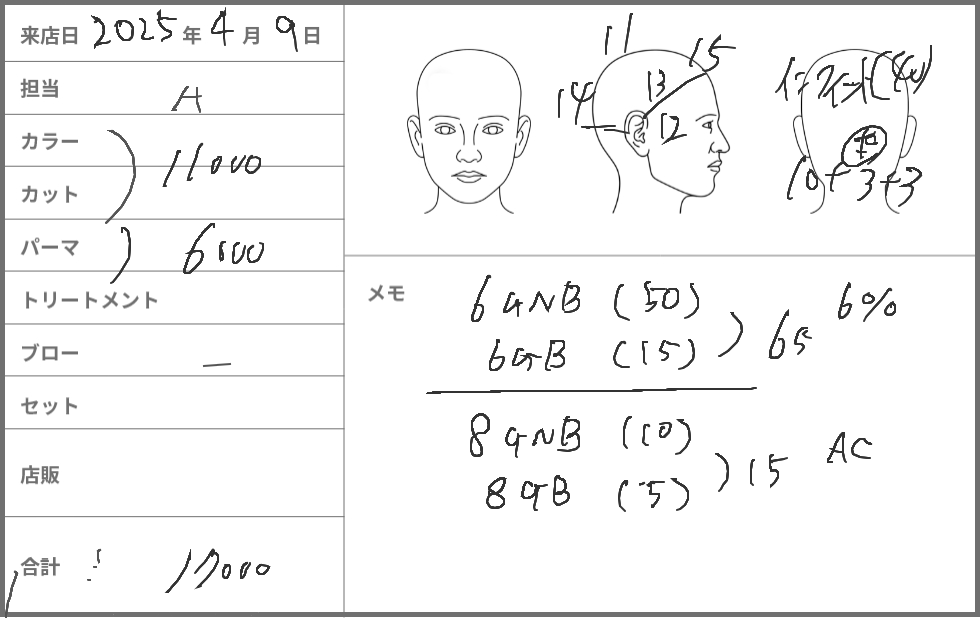 来店日 2025年4月9日
担当 A
カラー
11000
カット
パーマ 6000
トリートメント
ブロー —
セット
店販
合計 17000
11
15
14
13
12
(40)
10+3+3
メモ
6GNB (50)
6GB (15)
65
6%
8GNB (10)
8GB (5)
15
AC